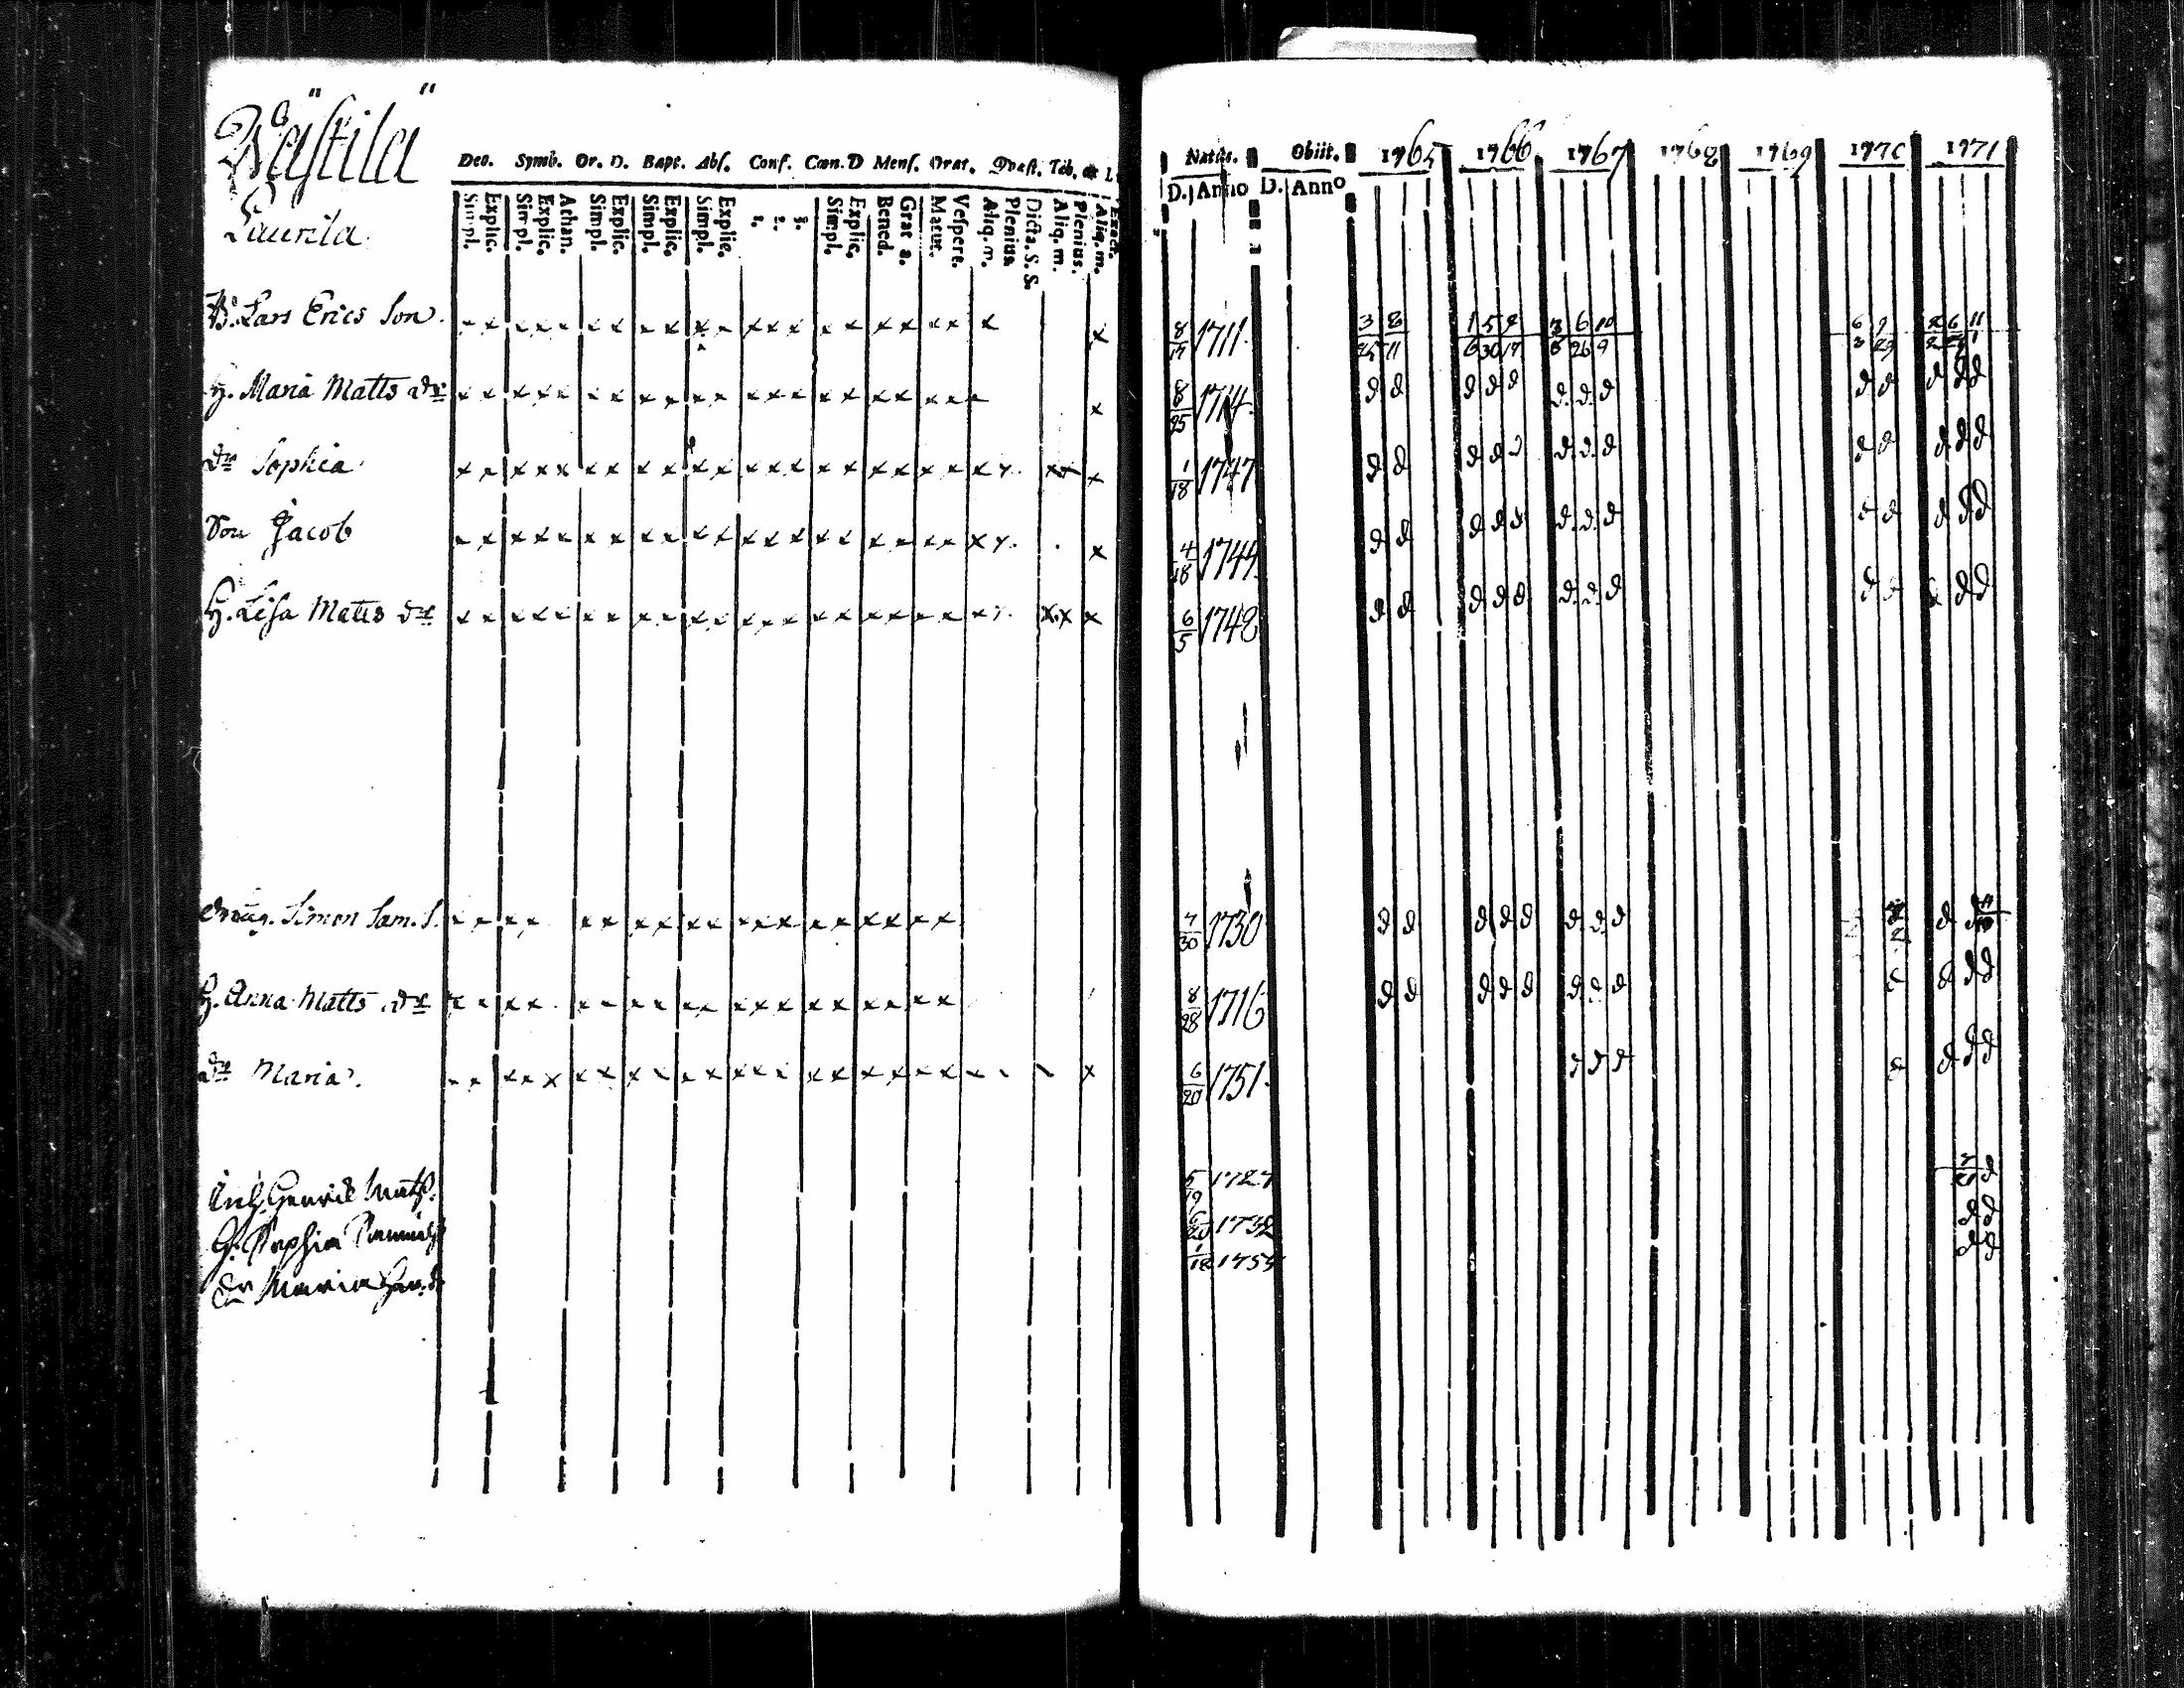 Wästilä
Laurila
Deo. Symb. Or. D. Bapt. Abs. Conf. Cœn. D Mens. Orat. Quæst. Tab.
Simpl. Explic. Simpl. Explic. Athan. Simpl. Explic. Simpl. Explic. Simpl. Explic. 1. 2. 3. Simpl. Explic. Bened. Grat. a. Matut. Vespert. Aliq. m. Plenius. Dicta. S. S. Aliq. m. Plenius. Aliq. m. Exact.
Natus. Obiit. 1765 1766 1767 1768 1769 1770 1771
D. Anno D. Anno
B. Lars Erics Son. 8/17 1711. 3/25 8/11
H. Maria Matts dr 8/25 1714. d d d d d d. d. d d d d d d
dr Sophia 1/18 1747 d d d d d d. d. d d d d d d
Son Jacob 4/18 1744. d d d d d d. d. d d d d d d
H. Lisa Matts dr 6/5 1748 d d d d d d. d. d d d d d
Simon Sam. S. 7/30 1730 d d d d d d. d. d d d
H. Anna Matts dr 8/28 1716 d d d d d d. d. d d d d
dr Maria. 6/20 1751. d d d d d d d
Inh. Henric Matts. 5/19 1727 d
H. Sophia 1732 d d
dr Maria Hen. d. 1/18 d d